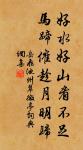 好水好山看不足
馬蹄催趁月明歸
岳飛池州翠微亭詞典
網集